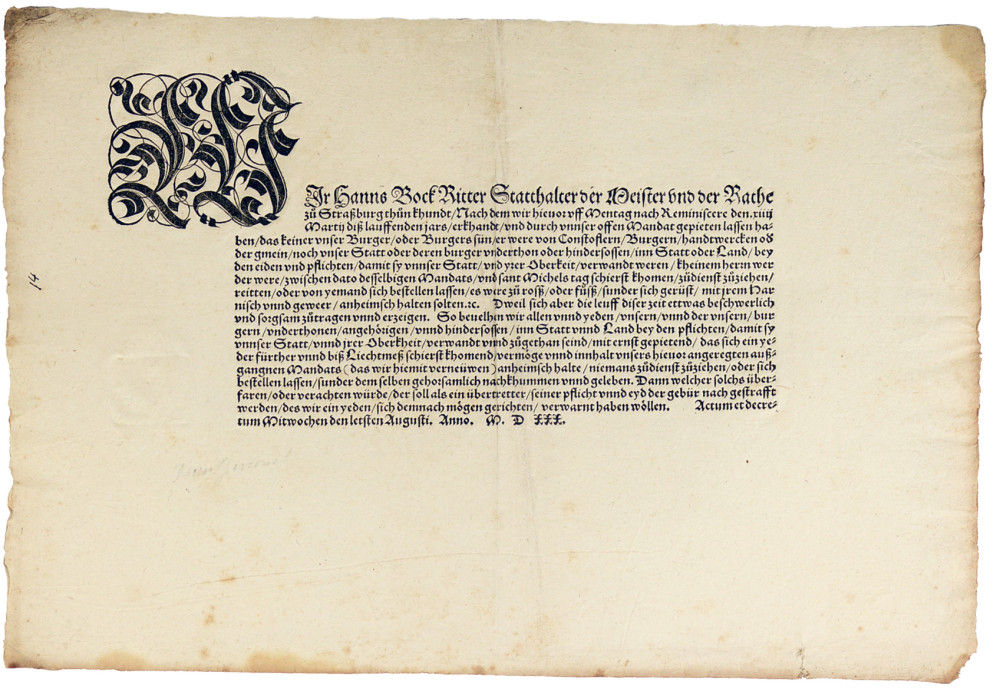 WIr Hanns Bock Ritter Statthalter der Meister vnd der Rathe
zů Straßburg thůn khundt/ Nach dem wir hieuor vff Mentag nach Reminiscere den. xiiii
Martij diß lauffenden jars/ erkhandt/ vnd durch vnnser offen Mandat gepieten lassen ha-
ben/ das keiner vnser Burger/ oder Burgers sün/ er were von Constoflern/ Burgern/ handtwercken od
der gmein/ noch vnser Statt oder deren burger vnderthon oder hindersossen/ inn Statt oder Land/ bey
den eiden vnd pflichten/ damit sy vnnser Statt/ vnd yrer Oberkeit/ verwandt weren/ kheinem herrn wer
der were/ zwischen dato desselbigen Mandats/ vnd sant Michels tag schierst khomen/ zůdienst zůziehen/
reitten/ oder von yemand sich bestellen lassen/ es wire zů roß/ oder fůß/ sunder sich gerüst/ mit jrem Har
nisch vnnd geweer/ anheimsch halten solten. ꝛc. Dweil sich aber die leuff diser zeit ettwas beschwerlich
vnd sorgsam zůtragen vnnd erzeigen. So beuelhen wir allen vnnd yeden/ vnsern/ vnnd der vnsern/ bur
gern/ vnderthonen/ angehörigen/ vnnd hindersossen/ inn Statt vnnd Land bey den pflichten/ damit sy
vnnser Statt/ vnnd jrer Oberkheit/ verwandt vnnd zůgethan seind/ mit ernst gepietend/ das sich ein ye-
der fürther vnnd biß Liechtmeß schierst khomend/ vermöge vnnd innhalt vnsers hieuor angeregten auß-
gangnen Mandats (das wir hiemit verneüwen) anheimsch halte/ niemans zůdienst zůziehen/ oder sich
bestellen lassen/ sunder dem selben gehorsamlich nachkhummen vnnd geleben. Dann welcher solchs über-
faren/ oder verachten würde/ der soll als ein übertretter/ seiner pflicht vnnd eyd der gebür nach gestrafft
werden/ des wir ein yeden/ sich demnach mögen gerichten/ verwarnt haben wöllen. Actum et decre-
tum Mitwochen den letsten Augusti. Anno. M. D XXX.
14